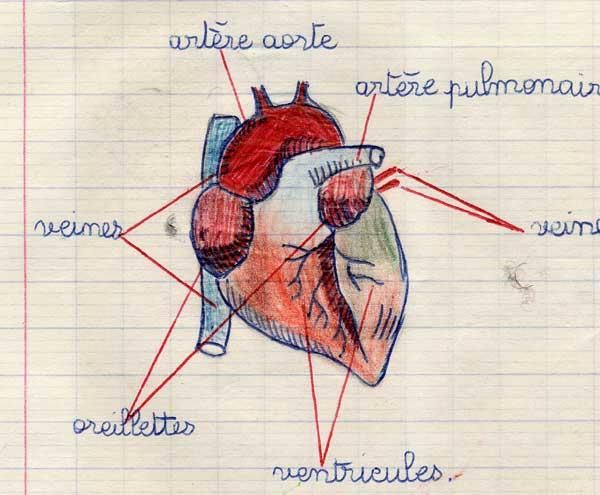 artère aorte
artère pulmonair
veines
veine
oreillettes
ventricules.